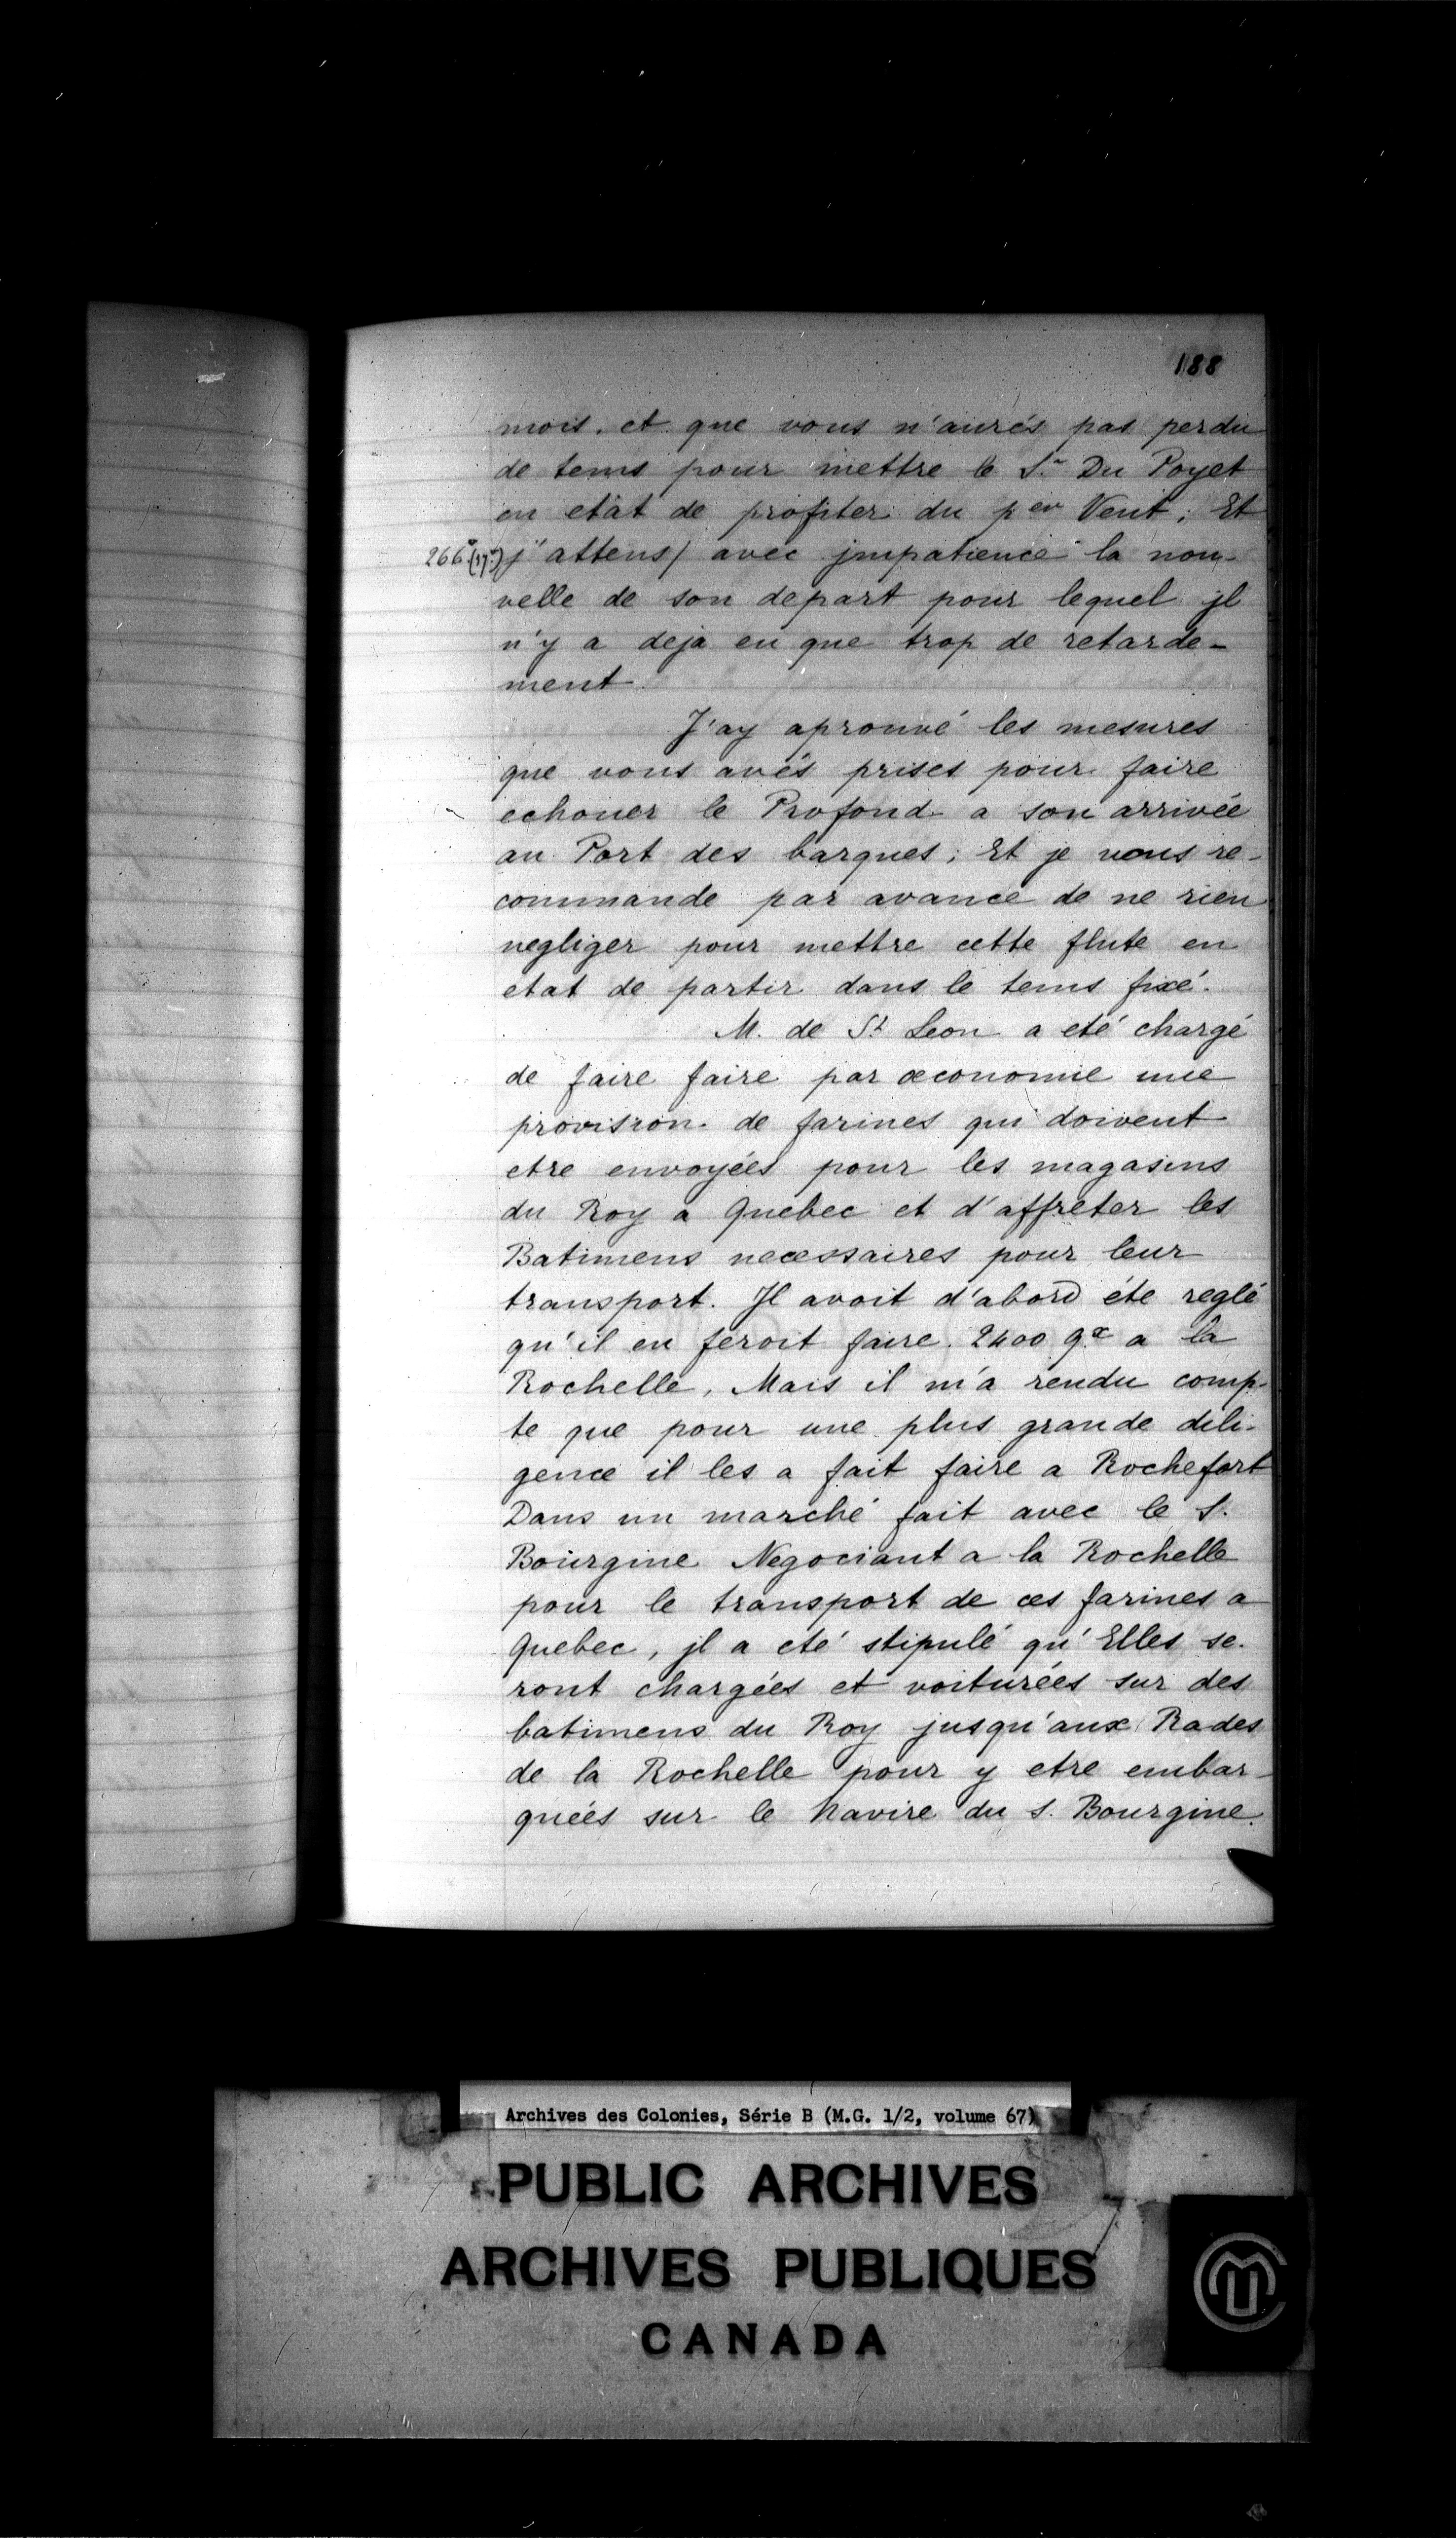 188
mois. et que vous n'aurés pas perdu
de tems pour mettre le S.r Du Poyet
en etat de profiter du p.er Vent; Et
266 j'attens/ avec jmpatience la nou-
velle de son depart pour lequel jl
n'y a deja eu que trop de retarde-
ment.
J'ay aprouvé les mesures
que vous avés prises pour faire
echouer le Profond a son arrivée
au Port des barques; Et je vous re-
commande par avance de ne rien
negliger pour mettre cette flute en
etat de partir dans le tems fixé.
M. de St Leon a eté chargé
de faire faire par œconomie une
provision de farines qui doivent
etre envoyées pour les magasins
du Roy a Quebec et d'affreter les
Batimens necessaires pour leur
transport. Jl avoit d'abord éte reglé
qu'il en feroit faire 2400 qx a la
Rochelle, Mais il m'a rendu comp-
te que pour une plus grande dili-
gence il les a fait faire a Rochefort
Dans un marché fait avec le S.
Bourgine Negociant a la Rochelle
pour le transport de ces farines a
Quebec, jl a eté stipulé qu'Elles se-
ront chargées et voiturées sur des
batimens du Roy jusqu'aux Rades
de la Rochelle pour y etre embar-
quées sur le Navire du S. Bourgine.
Archives des Colonies, Série B (M.G. 1/2, volume 67)
PUBLIC ARCHIVES
ARCHIVES PUBLIQUES
CANADA